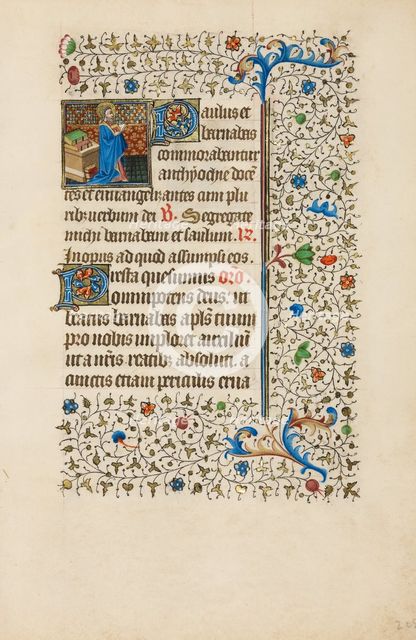 Paulus et
barnabas
commorabantur
anthyoche docē
tes et euuangelizantes cum plu
ribȝ uerbum dei B. Segregate
michi barnabam et saulum. R.
In opus ad quod assumpsi eos.
Presta quesumus oro
omnipotens deus. ut
beatus barnabas apl̄s tuum
pro nobis imploret auxiliū
ut a nr̄is reatibȝ absoluti. a
cunctis etiam periculis erua